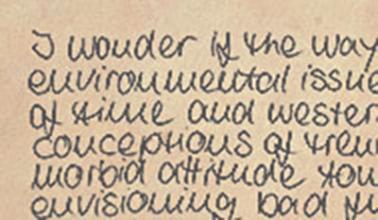 I wonder if the way
environmental issue
of time and wester
conceptions of tren
morbid attitude tow
envisioning bad fu